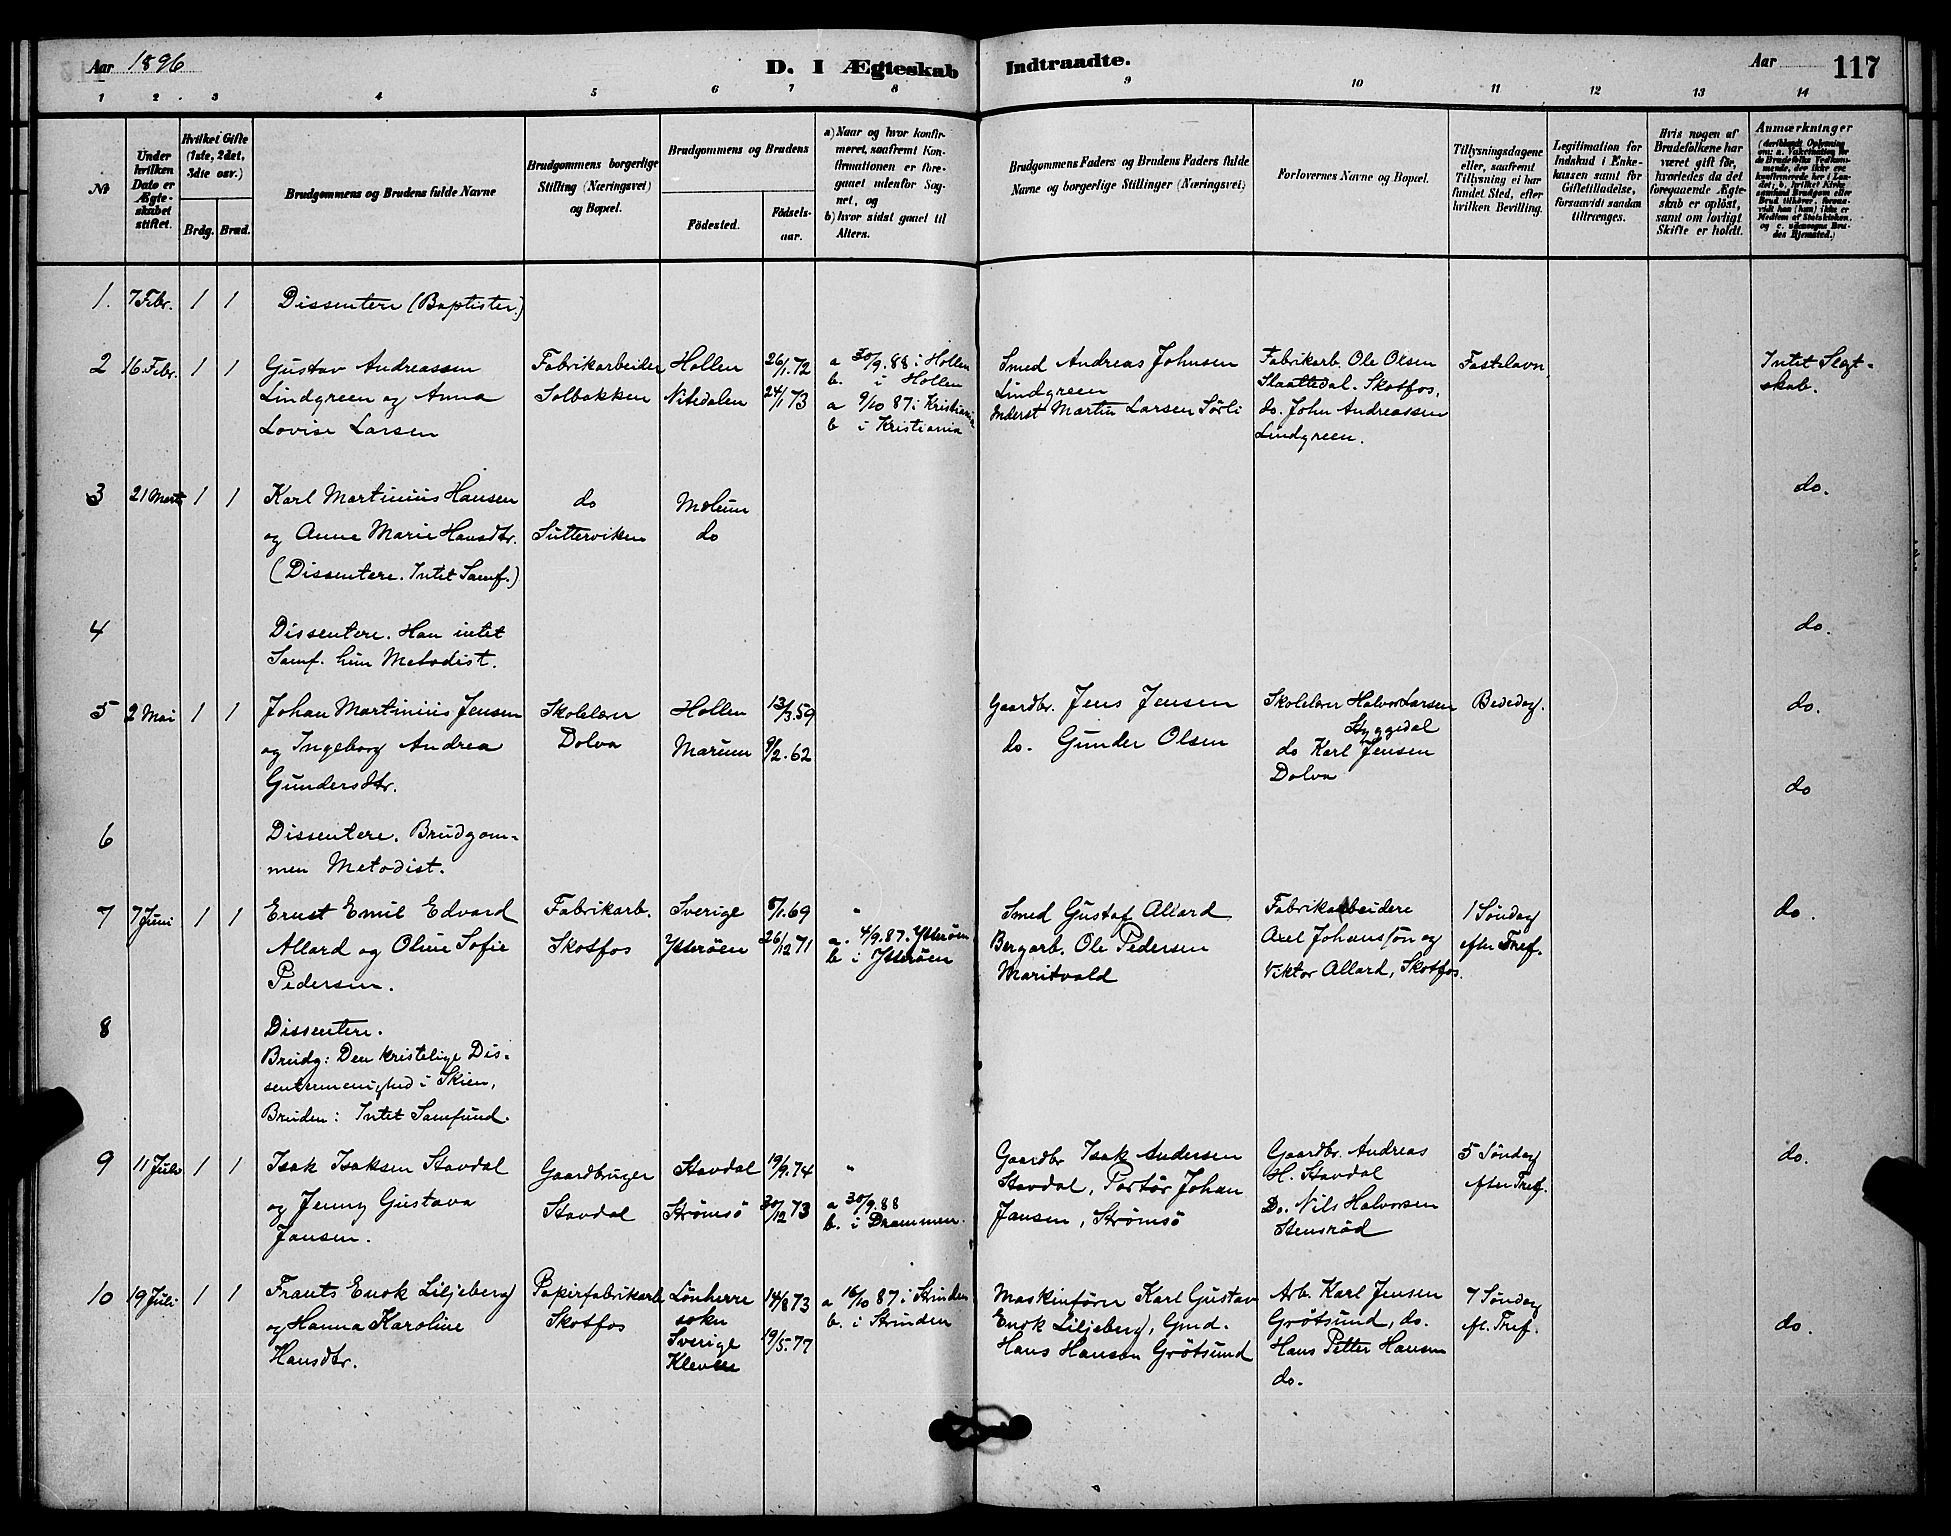 Aar 1896
D. I Ægteskab Indtraadte.
Aar
117
1 2 3 4 5 6 7 8 9 10 11 12 13 14
Nr
Under hvilken Dato er Ægteskabet stiftet.
Hvilket Gifte (1ste, 2det, 3die osv.)
Brdg. Brud.
Brudgommens og Brudens fulde Navne
Brudgommens borgerlige Stilling (Næringsvei) og Bopæl.
Brudgommens og Brudens
Födested.
Födselsaar.
a) Naar og hvor konfirmeret, saafremt Konfirmationen er foregaaet udenfor Sognet, og
b) hvor sidst gaaet til Alters.
Brudgommens Faders og Brudens Faders fulde Navne og borgerlige Stillinger (Næringsvei)
Forlovernes Navne og Bopæl.
Tillysningsdagene eller, saafremt Tillysning ei har fundet Sted, efter hvilken Bevilling.
Legitimation for Indskud i Enkekassen samt for Giftetilladelse, forsaavidt saadan tiltrænges.
Hvis nogen af Brudefolkene har været gift før, hvorledes da det foregaaende Ægteskab er opløst, samt om lovligt Skifte er holdt.
Anmærkninger
1. 7 Febr. 1 1 Dissentere (Baptister.)
2 16 Febr. 1 1 Gustav Andreassen Fabrikarbeider Hollen 26/1.72 a 30/9.88 i Hollen Smed Andreas Johnsen Fabrikarb. Ole Olsen Fastelavn. Intet Slegt-
Lindgreen og Anna Solbakken Nitedalen 24/1 73 b. i Hollen Lindgreen Slaattedal. Skotfos. skab.
Lovise Larsen a 9/10 87 i Kristiania Inderst Martin Larsen Sørli do. John Andreassen
b i Kristiania Lindgreen.
3 21 Marts 1 1 Karl Martinius Hansen do Molum do.
og Anne Marie Hansdtr. Sutterviken do
(Dissentere. Intet Samf.)
4 Dissentere. Han intet do.
Samf. hun Metodist.
5 2 Mai 1 1 Johan Martinius Jensen Skolelærer Hollen 13/3.59 Gaardbr. Jens Jensen Skolelærer Halvor Larsen Bededag. do.
og Ingeborg Andrea Dolva Marum 9/2.62 do. Gunder Olsen Hyggedal
Gundersdtr. do Karl Jensen
Dolva do
6 Dissentere. Brudgom-
men Metodist.
7 7 Juni 1 1 Ernst Emil Edvard Fabrikarb. Sverige 5/1.69 " Smed Gustaf Allard Fabrikarbeidere 1 Søndag do.
Allard og Oline Sofie Skotfos Ytterøen 26/12 71 a. 4/9.87. Ytterøen Bergarb. Ole Pedersen Axel Johansson og efter Tref.
Pedersen. b i Ytterøen Maritvald Viktor Allard, Skotfos.
8 Dissentere.
Brudg: Den kristelige Dis-
sentermenighed i Skien,
Bruden: Intet Samfund.
9 11 Juli 1 1 Isak Isaksen Stavdal Gaardbruger Stavdal 19/9.74 " Gaardbr Isak Andersen Gaardbr. Andreas 5 Søndag do.
og Jenny Gustava Stavdal Strømsö 30/12 73 a 30/9.88 Stavdal, Portør Johan H. Stavdal efter Tref.
Jansen. b. i Drammen. Jansen, Strømsö Do. Nils Halvorsen
Stensröd
10 19 Juli 1 1 Frants Enok Liljeberg Papirfabrikarb Lönherre 14/8 73 a 16/10 87 i Strinden Maskinfører Karl Gustav Arb. Karl Jensen 7 Søndag
og Hanna Karoline Skotfos sokn b. i Strinden Enok Liljeberg, Gmd. Grötsund, do. ef. Tref. do.
Hansdtr. Sverige 19/5.77 Hans Hansen Grötsund Hans Petter Hansen
Klevene do.